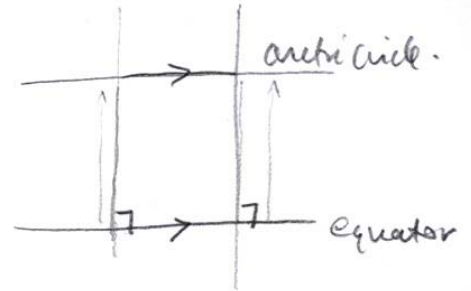 arctic circle.
equator